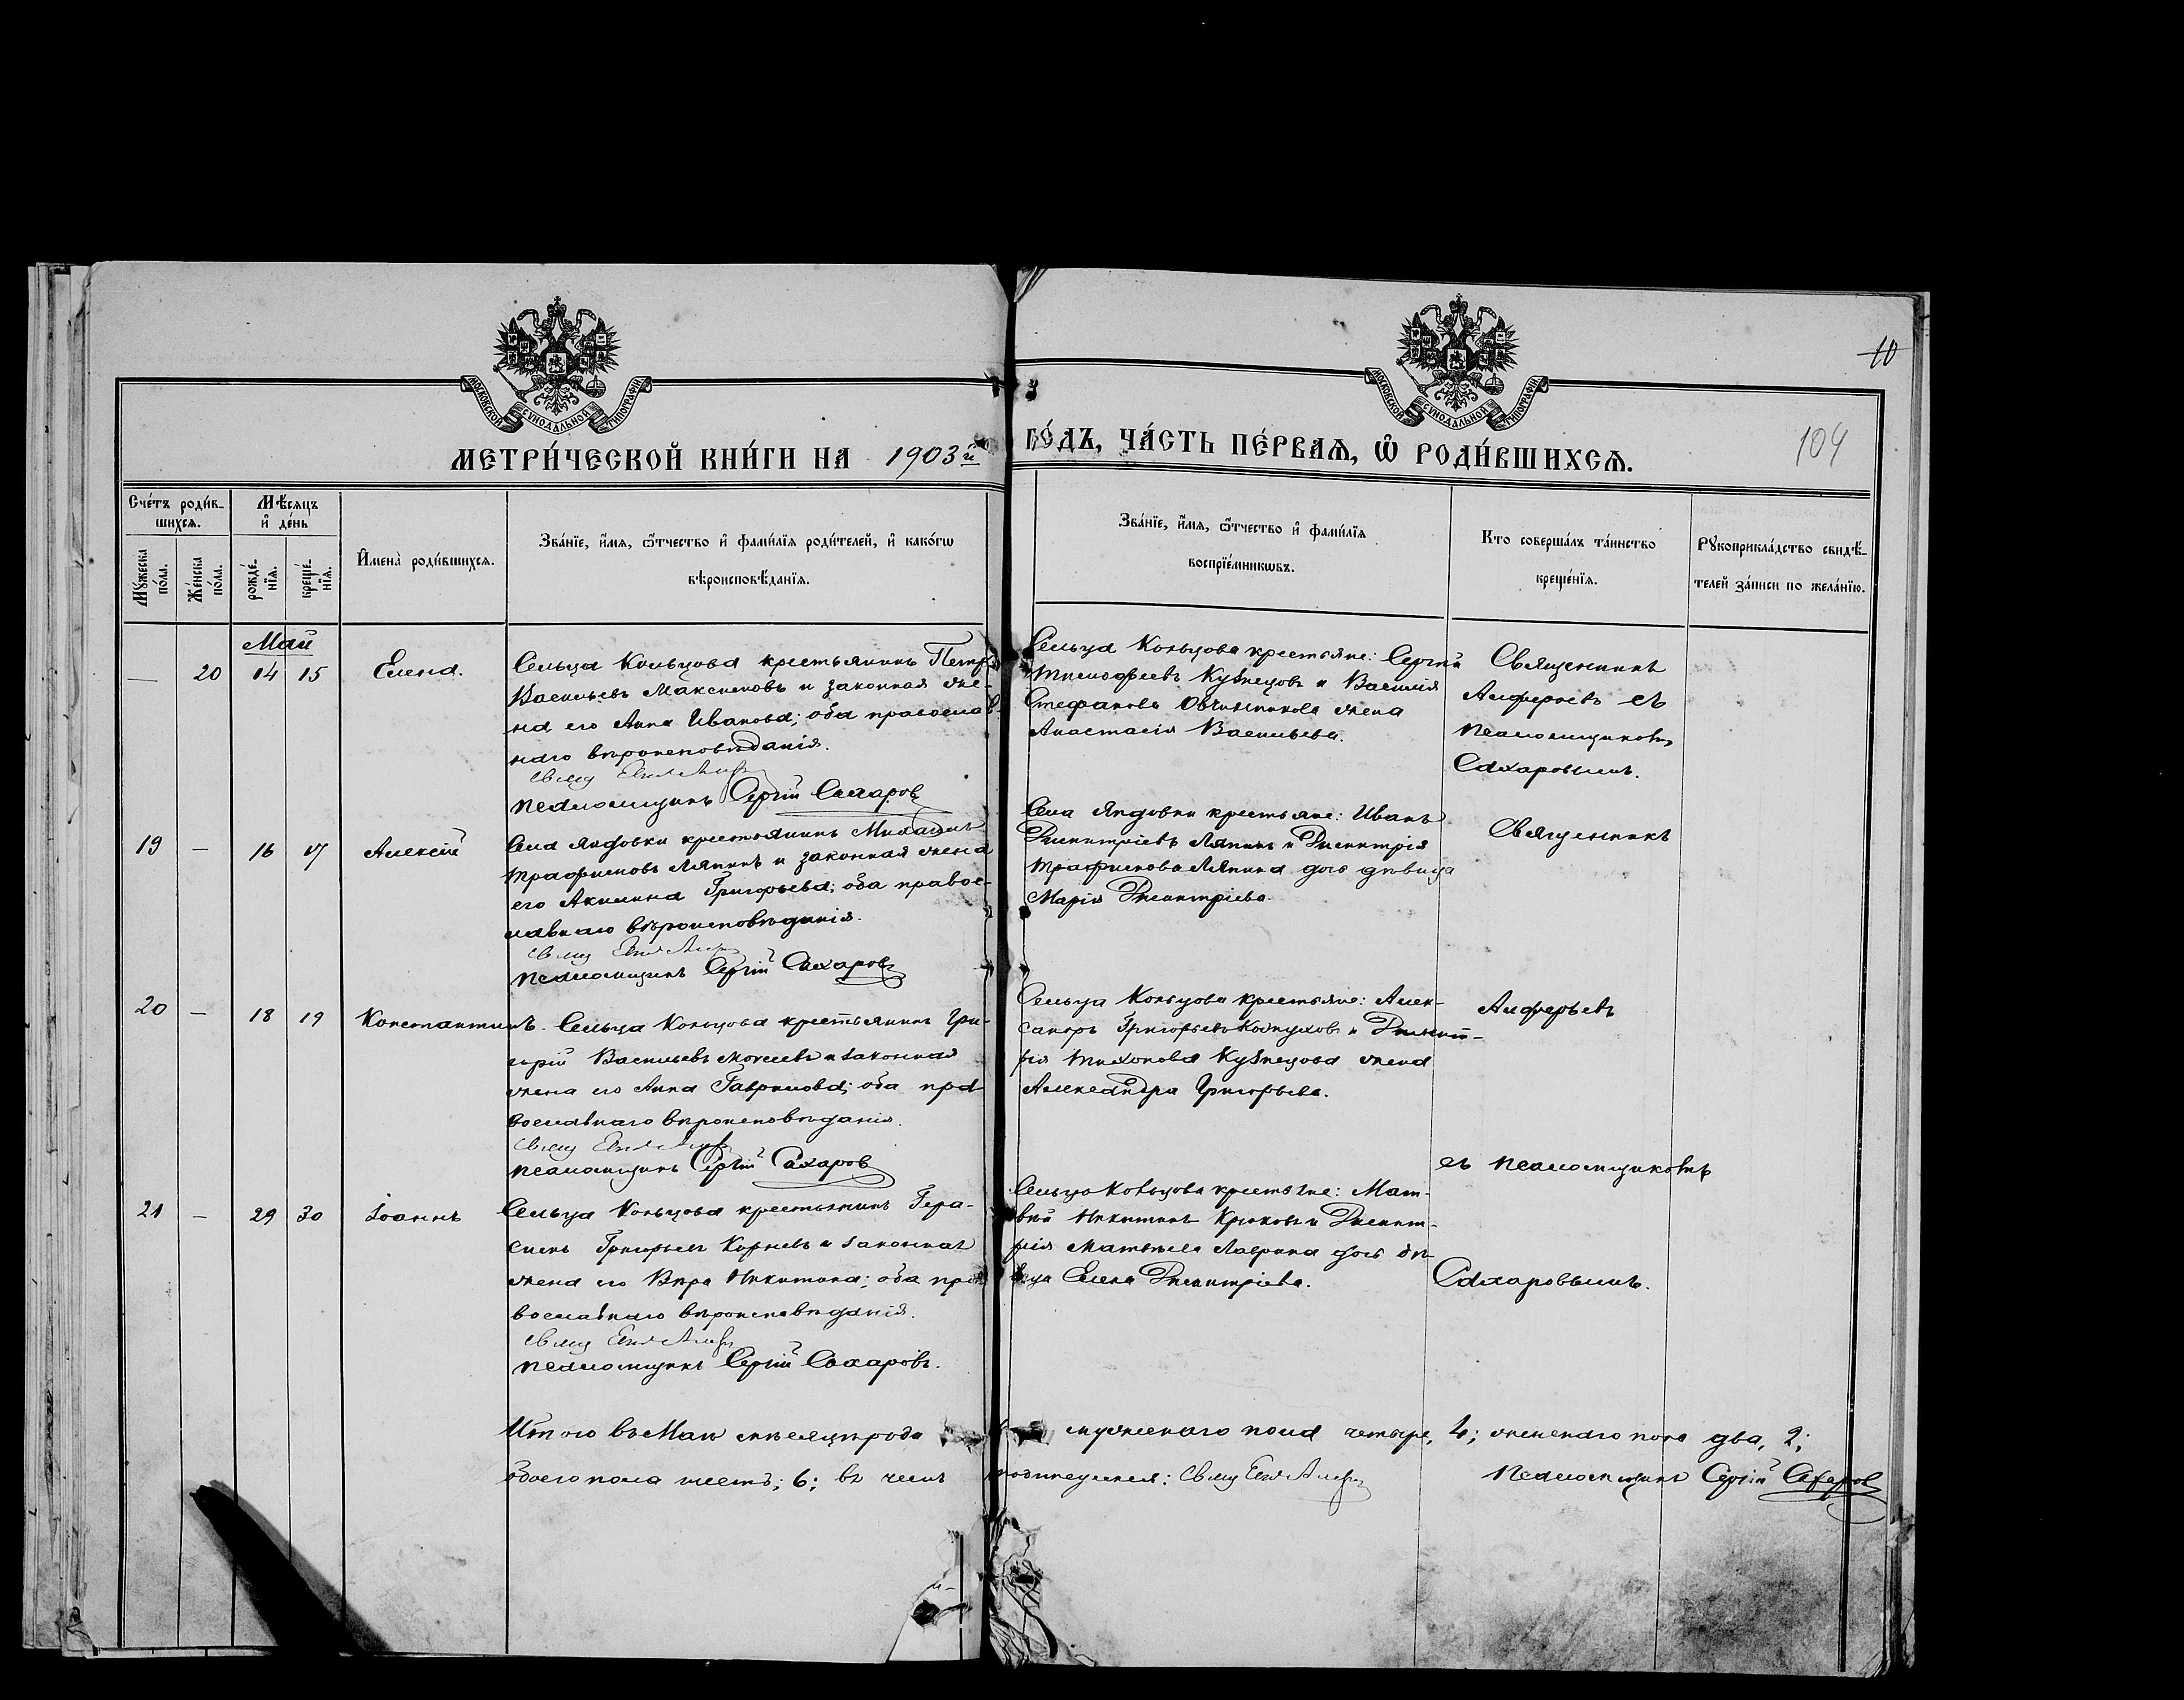 МОСКОВСКОЙ СУНОДАЛЬНОЙ ТИПОГРАФІИ
МОСКОВСКОЙ СУНОДАЛЬНОЙ ТИПОГРАФІИ
10
104
МЕТРИ́ЧЕСКОЙ КНИ́ГИ НА 1903й ГО́ДЪ, ЧА́СТЬ ПЕ́РВАѦ, Ѡ҆ РОДИ́ВШИХСѦ.
Сче́тъ роди́в-
шихсѧ.
Мѣ́сѧцъ
и҆ де́нь
Мꙋ́жеска
по́ла.
Же́нска
по́ла.
рожде́-
нїѧ.
креще́-
нїѧ.
И҆мена̀ роди́вшихсѧ.
Зва́нїе, и҆́мѧ, ѻ҆́тчество и҆ фами́лїѧ роди́телей, и҆ како́гѡ
вѣроисповѣ́данїѧ.
Зва́нїе, и҆́мѧ, ѻ҆́тчество и҆ фами́лїѧ
воспрїе́мникѡвъ.
Кто соверша́лъ та́инство
креще́нїѧ.
Рꙋкоприкла́дство свидѣ́-
телей за́писи по жела́нїю.
Май
— 20 14 15 Елена.
Сельца Кольцова крестьянинъ Петръ
Васильевъ Максимовъ и законная же-
на его Анна Иванова; оба православ-
наго вѣроисповѣданія.
Псаломщикъ Сергій Сахаровъ
Сельца Кольцова крестьяне: Сергій
Тимофеевъ Кузнецовъ и Василія
Стефанова Овчинникова жена
Анастасія Васильева.
Священникъ
Алферьевъ съ
псаломщикомъ
Сахаровымъ.
19 — 16 17 Алексій
Села Яндовки крестьянинъ Михаилъ
Трафимовъ Ляпинъ и законная жена
его Акилина Григорьева; оба правос-
лавнаго вѣроисповѣданія.
Псаломщикъ Сергій Сахаровъ
Села Яндовки крестьяне: Иванъ
Димитріевъ Ляпинъ и Димитрія
Трафимова Ляпина дочь дѣвица
Марія Димитріева.
Священникъ
20 — 18 19 Константинъ.
Сельца Кольцова крестьянинъ Гри-
горій Васильевъ Моисеевъ и законная
жена его Анна Гаврилова; оба пра-
вославнаго вѣроисповѣданія.
Псаломщикъ Сергій Сахаровъ
Сельца Кольцова крестьяне: Алек-
сандръ Григорьевъ и Димит-
рія Тихонова Кузнецова жена
Александра Григорьева.
Алферьевъ
съ псаломщикомъ
21 — 29 30 Іоаннъ
Сельца Кольцова крестьянинъ Гера-
симъ Григорьевъ Корневъ и законная
жена его Вѣра Никитина; оба пра-
вославнаго вѣроисповѣданія.
Псаломщикъ Сергій Сахаровъ.
Сельца Кольцова крестьяне: Мат-
вѣй Никитинъ Крюковъ и Димит-
рія Матвѣева Лаврина дочь дѣ-
вица Елена Димитріева.
Сахаровымъ.
Итого въ Маѣ мѣсяцѣ роди мужескаго пола четыре, 4; женскаго пола два, 2;
обоего пола шесть; 6; въ чемъ подписуемся: Псаломщикъ Сергій Сахаровъ